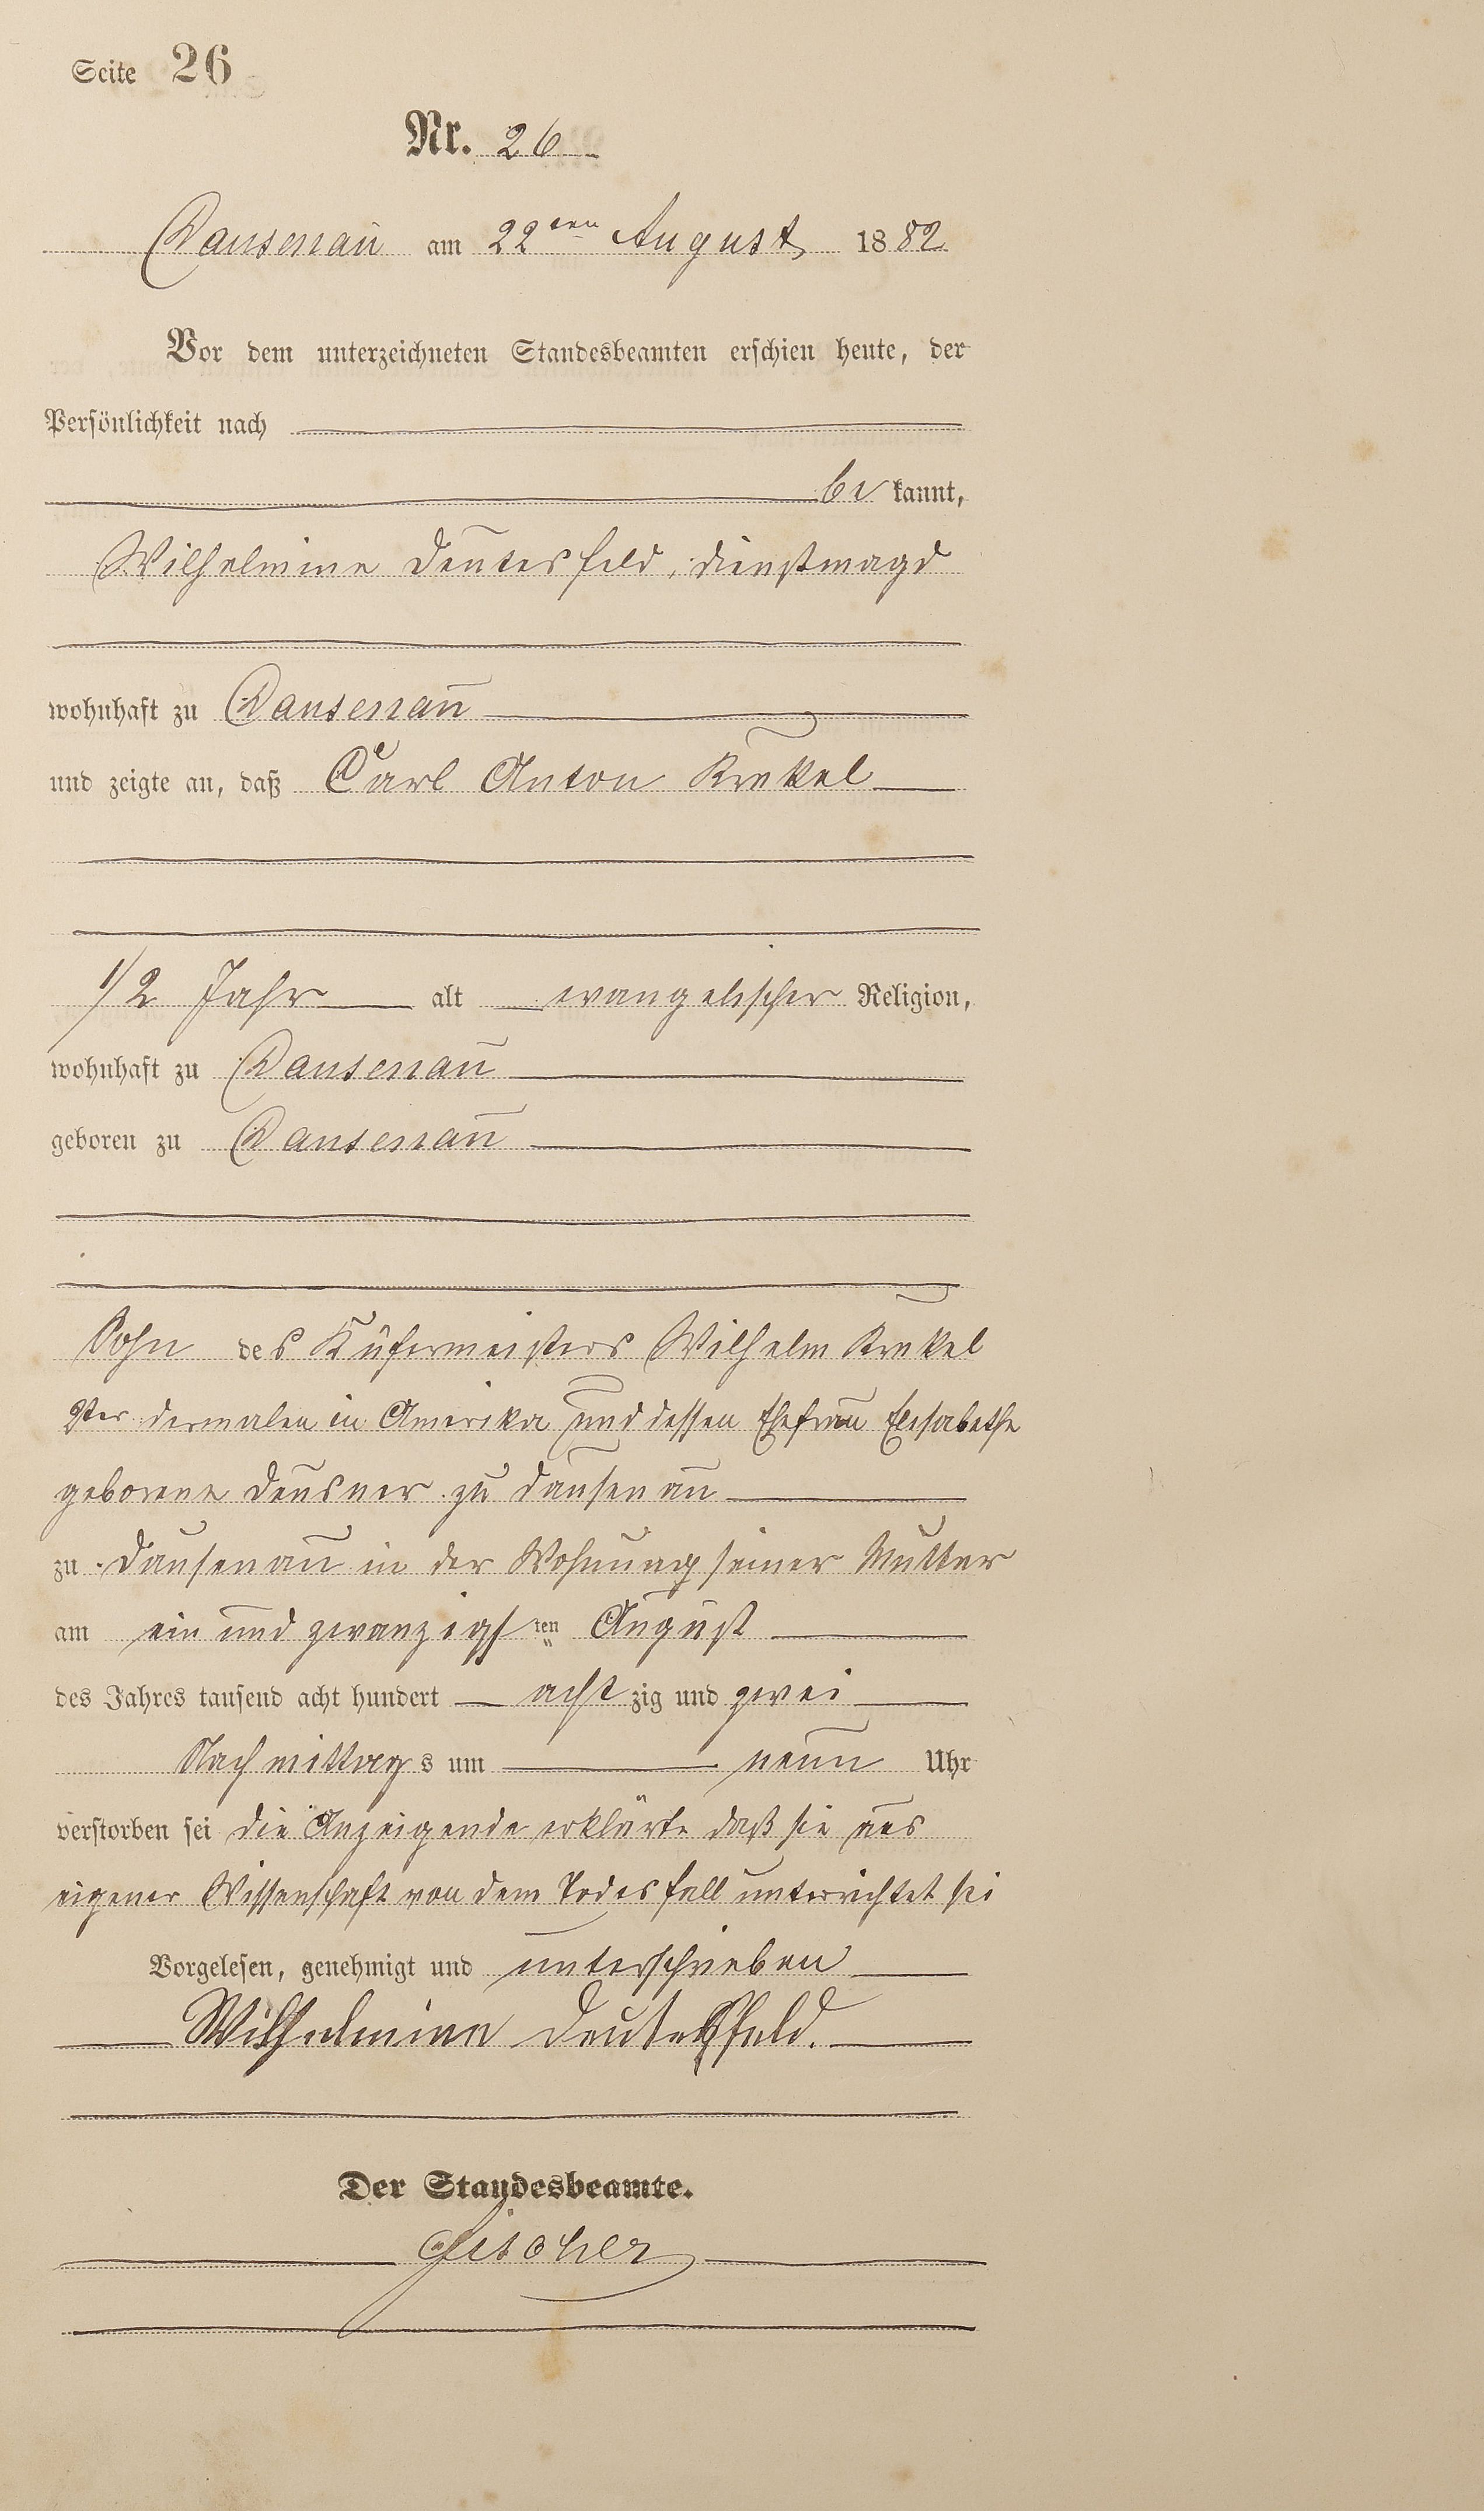 Seite 26
Nr. 26
Dausenau am 22ten August 1882
Vor dem unterzeichneten Standesbeamten erschien heute, der
Persönlichkeit nach
be kannt,
Wilhelmine Deutesfeld, Dienstmagd
wohnhaft zu Dausenau
und zeigte an, daß Carl Anton Krekel
1/2 Jahr alt evangelischer Religion,
wohnhaft zu Dausenau
geboren zu Dausenau
Sohn des Küfermeisters Wilhelm Krekel
dermalen in Amerika und dessen Ehefrau Elisabethe
geborene Deusner zu Dausenau
zu Dausenau in der Wohnung seiner Mutter
am ein und zwanzigsten August
des Jahres tausend acht hundert achtzig und zwei
Nachmittags um neun Uhr
verstorben sei die Anzeigende erklärte daß sie aus
eigener Wissenschaft von dem Todesfall unterrichtet sei
Vorgelesen, genehmigt und unterschrieben
Wilhelmine Deutesfeld.
Der Standesbeamte.
Fischer